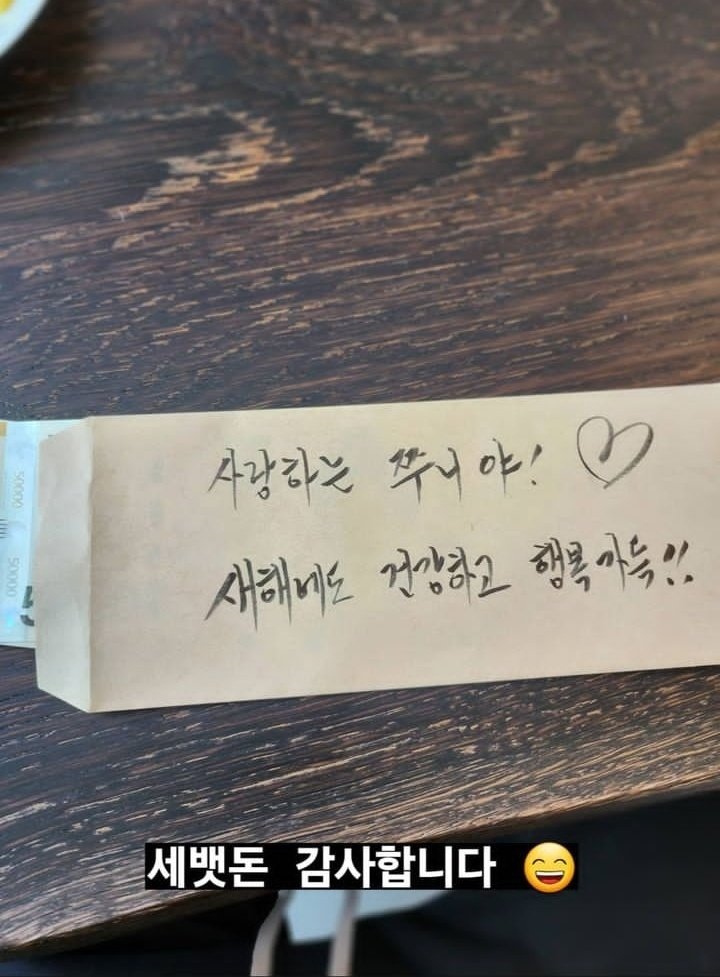 사랑하는 쭈니야! ♡
새해에도 건강하고 행복가득!!
50000
50000
세뱃돈 감사합니다 😄